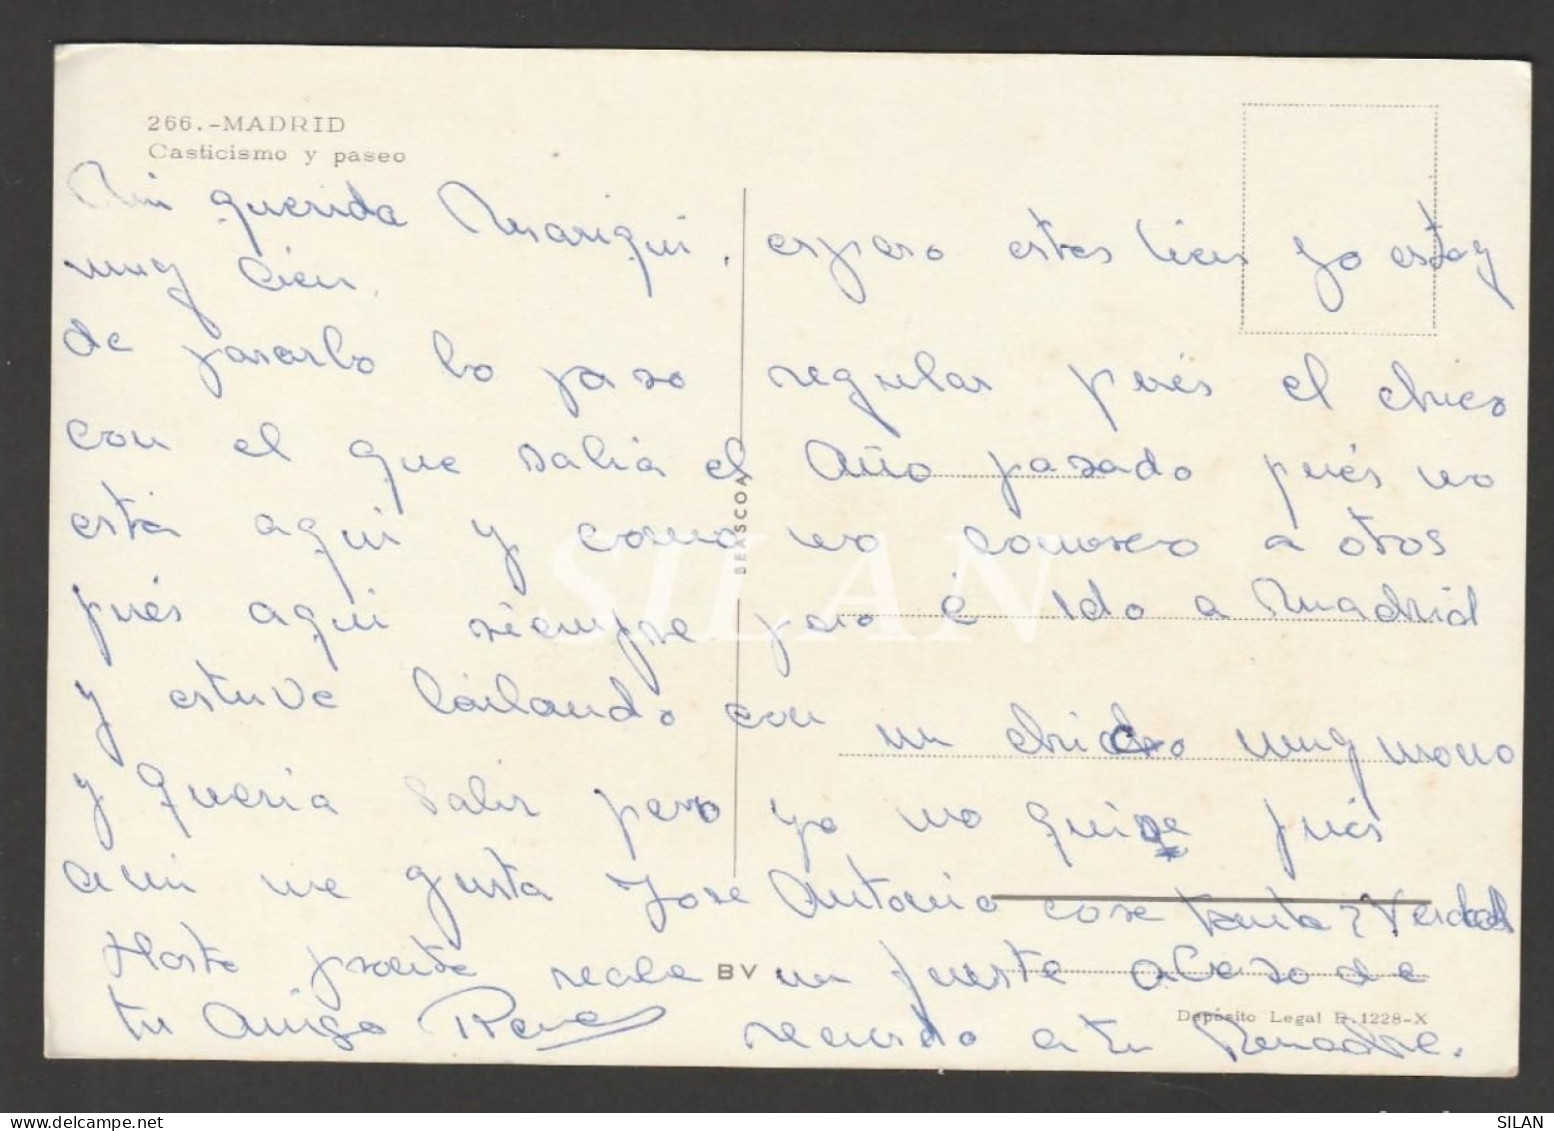 266.-MADRID
Casticismo y paseo
Mi querida Mariqui, espero estes bien yo estoy
muy bien.
de pasarlo lo paso regular pués el chico
con el que salia el año pasado pués no
está aqui y como no conosco a otros
pués aqui siempre pero é ido a Madrid
y estuve bailando con un chico muy mono
y queria salir pero yo no quise pués
a mi me gusta Jose Antonio cose tonta? Verdad
Hasta pronto recibe un fuerte abrazo de
tu amiga recuerdo a tu madre.
BEASCOA
BV
Depósito Legal B.1228-X
SILAN
SILAN